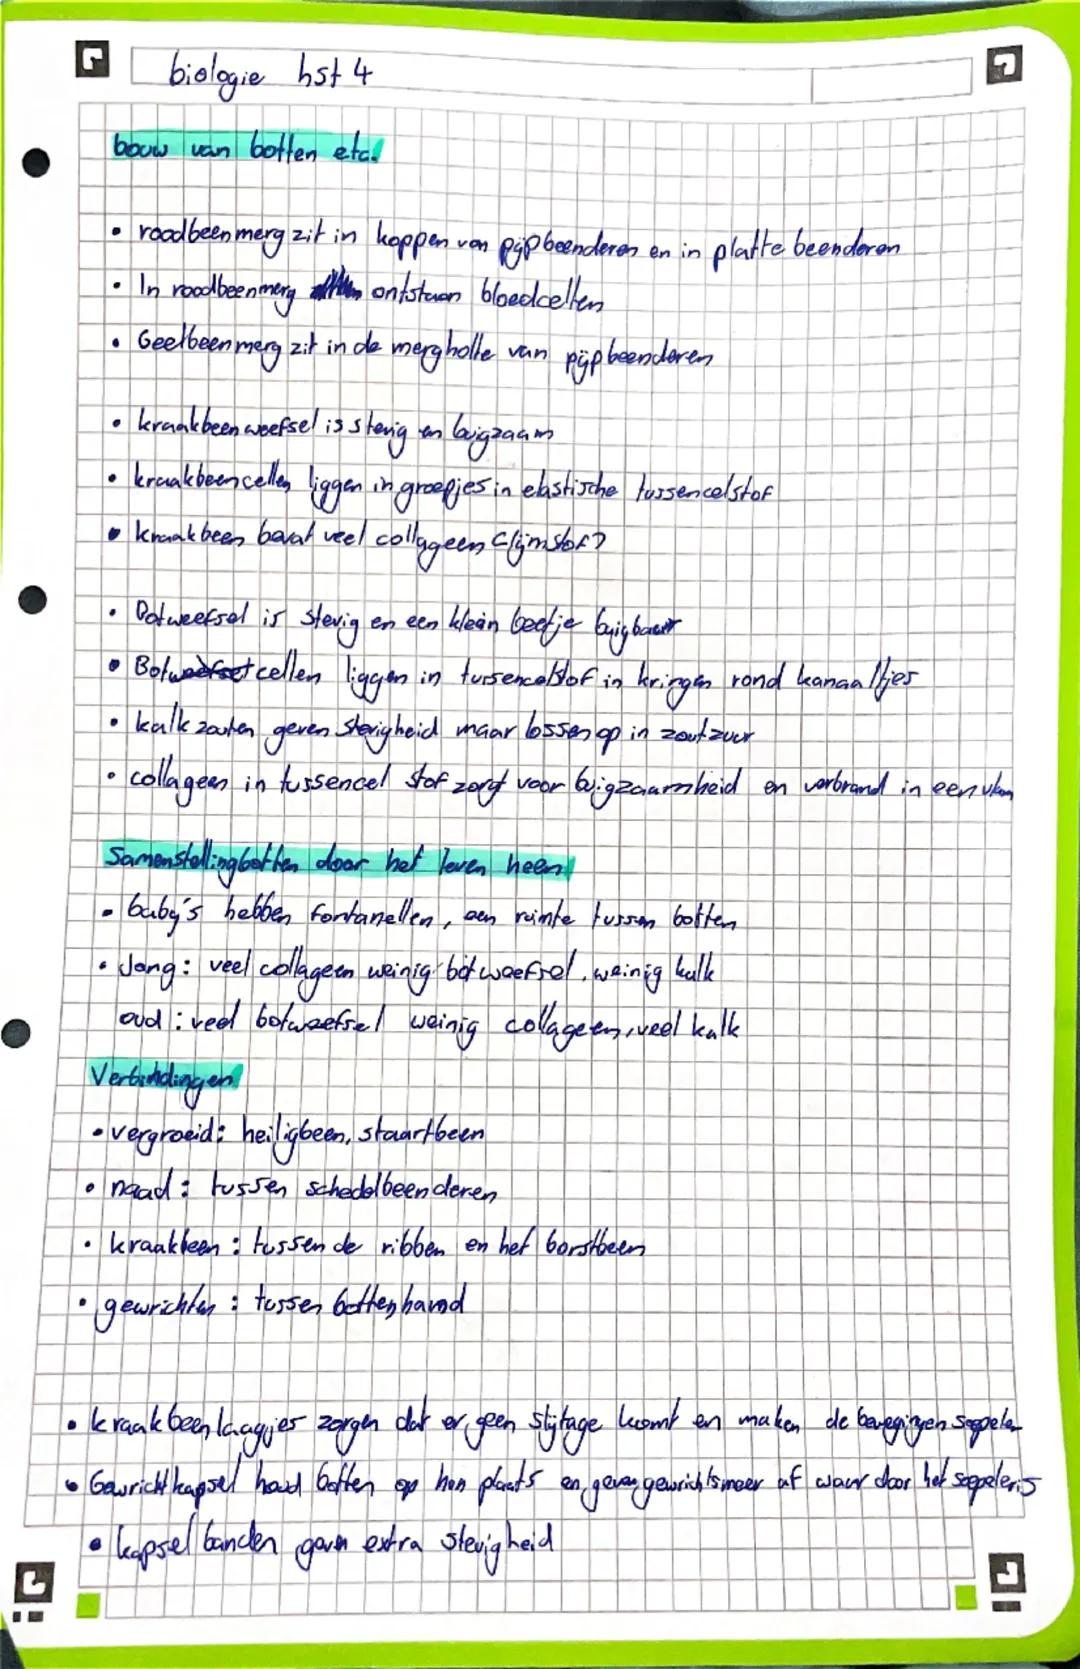 biologie hst 4
bouw van botten etc.
• roodbeenmerg zit in koppen van pijpbeenderen en in platte beenderen
• In roodbeenmerg ontstaan bloedcellen
• Geelbeenmerg zit in de mergholte van pijpbeenderen
• kraakbeenweefsel is stevig en buigzaam
• kraakbeencellen liggen in groepjes in elastische tussencelstof
• kraakbeen bevat veel collageen (lijmstof)
• Botweefsel is stevig en een klein beetje buigbaar
• Botcellen liggen in tussencelstof in kringen rond kanaaltjes
• kalkzouten geven stevigheid maar lossen op in zoutzuur
• collageen in tussencel stof zorgt voor buigzaamheid en verbrand in een vlam
Samenstelling botten door het leven heen
• baby's hebben fontanellen, een ruimte tussen botten
• Jong: veel collageen weinig botweefsel, weinig kalk
oud: veel botweefsel weinig collageen, veel kalk
Verbindingen
• vergroeid: heiligbeen, staartbeen
• naad: tussen schedelbeenderen
• kraakbeen: tussen de ribben en het borstbeen
• gewrichten: tussen botten hand
• kraakbeenlaagjes zorgen dat er geen slijtage komt en maken de bewegingen soepeler
• Gewrichtkapsel houd botten op hun plaats en geven gewrichtsmeer af waar door het soepeler is
• kapselbanden geven extra stevigheid